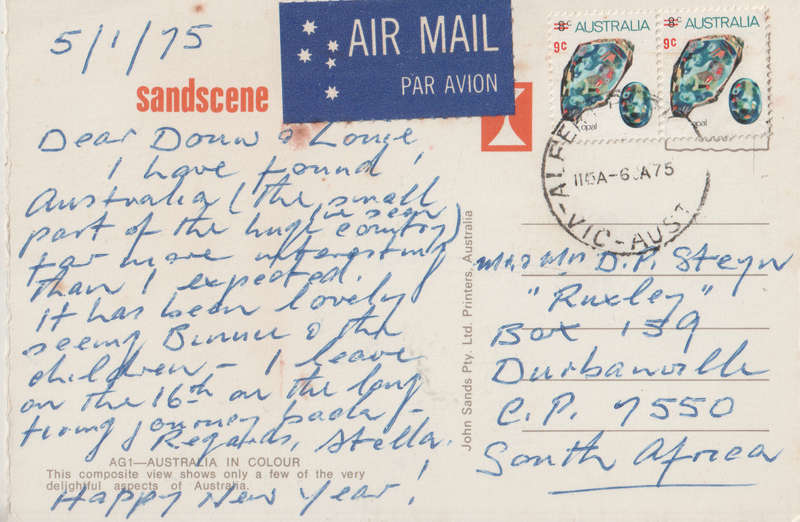 5/1/75
AIR MAIL
PAR AVION
8c AUSTRALIA
9c
opal
8c AUSTRALIA
9c
opal
sandscene
1145A-6JA75
VIC-AUST
Dear Douw & Louise,
I have found
Australia (the small
part of the huge country
I've seen)
far more interesting
than I expected.
It has been lovely
seeing Bunnie & the
children - I leave
on the 16th on the long
tiring journey back -
Regards, Stella.
AG1—AUSTRALIA IN COLOUR
This composite view shows only a few of the very
delightful aspects of Australia.
Happy New Year!
John Sands Pty. Ltd. Printers, Australia
Mr & Mrs D.P. Steyn
"Ruxley"
Box 139
Durbanville
C.P. 7550
South Africa